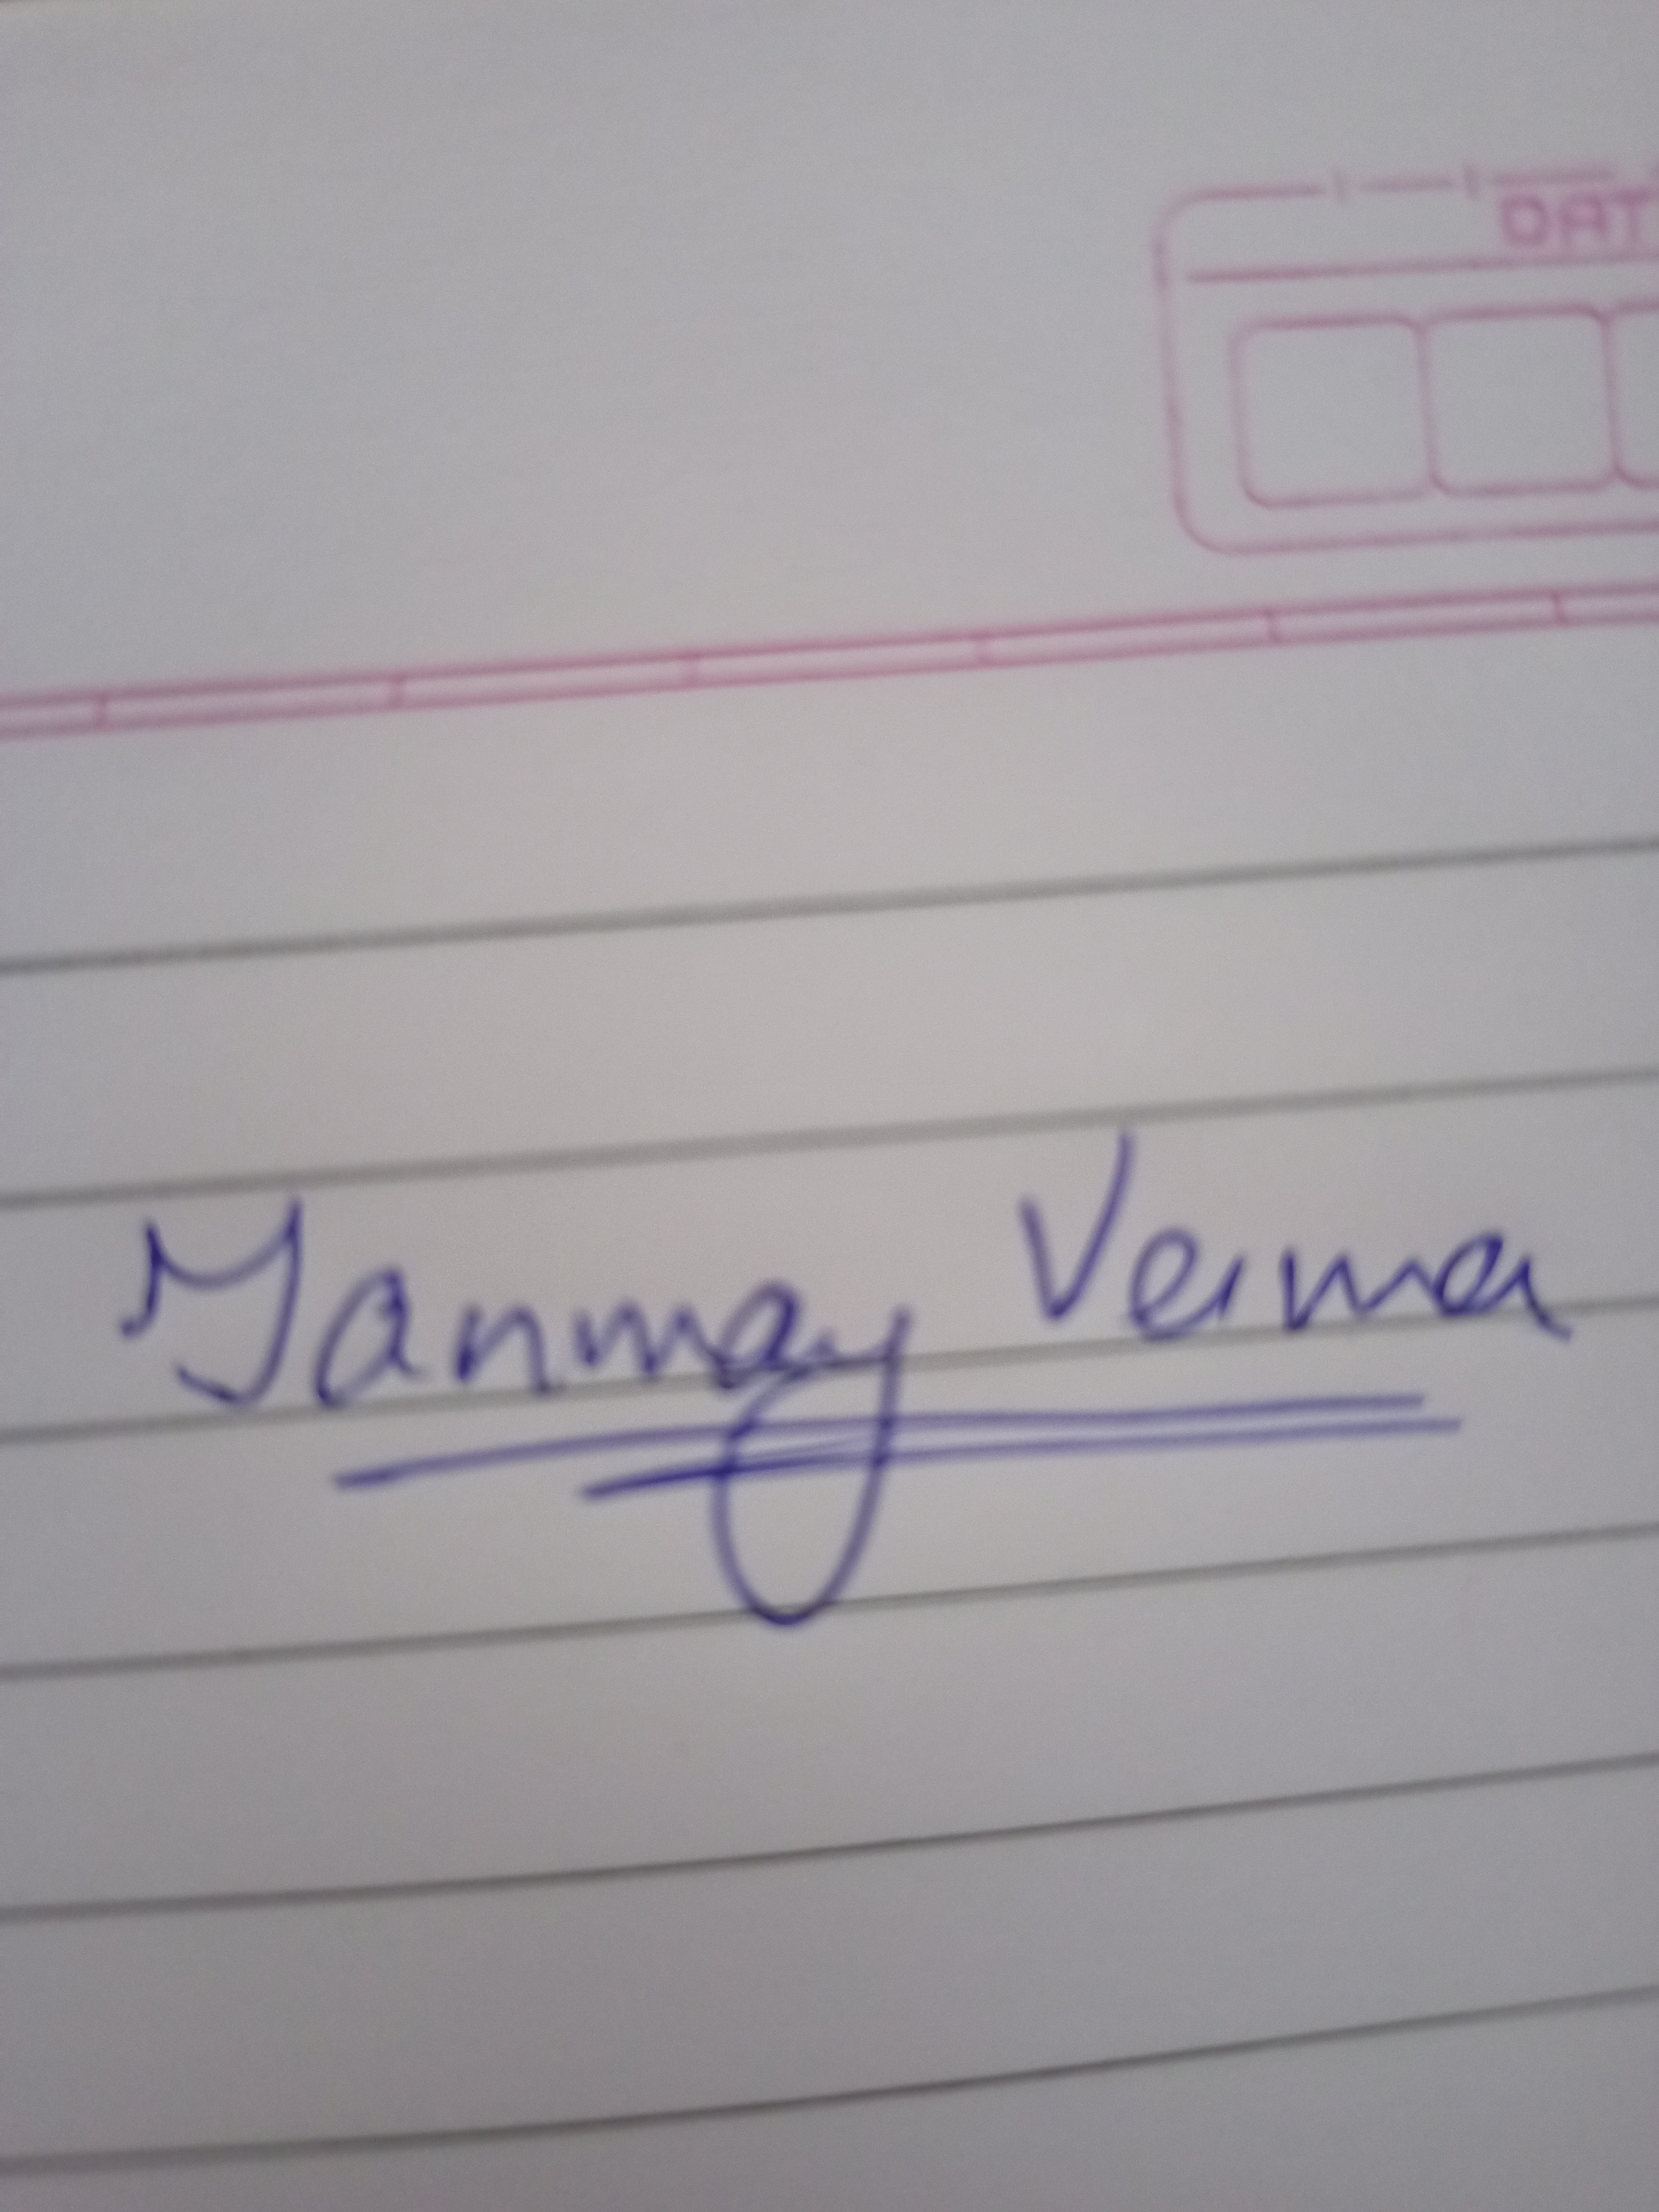 DAT
Tanmay Verma